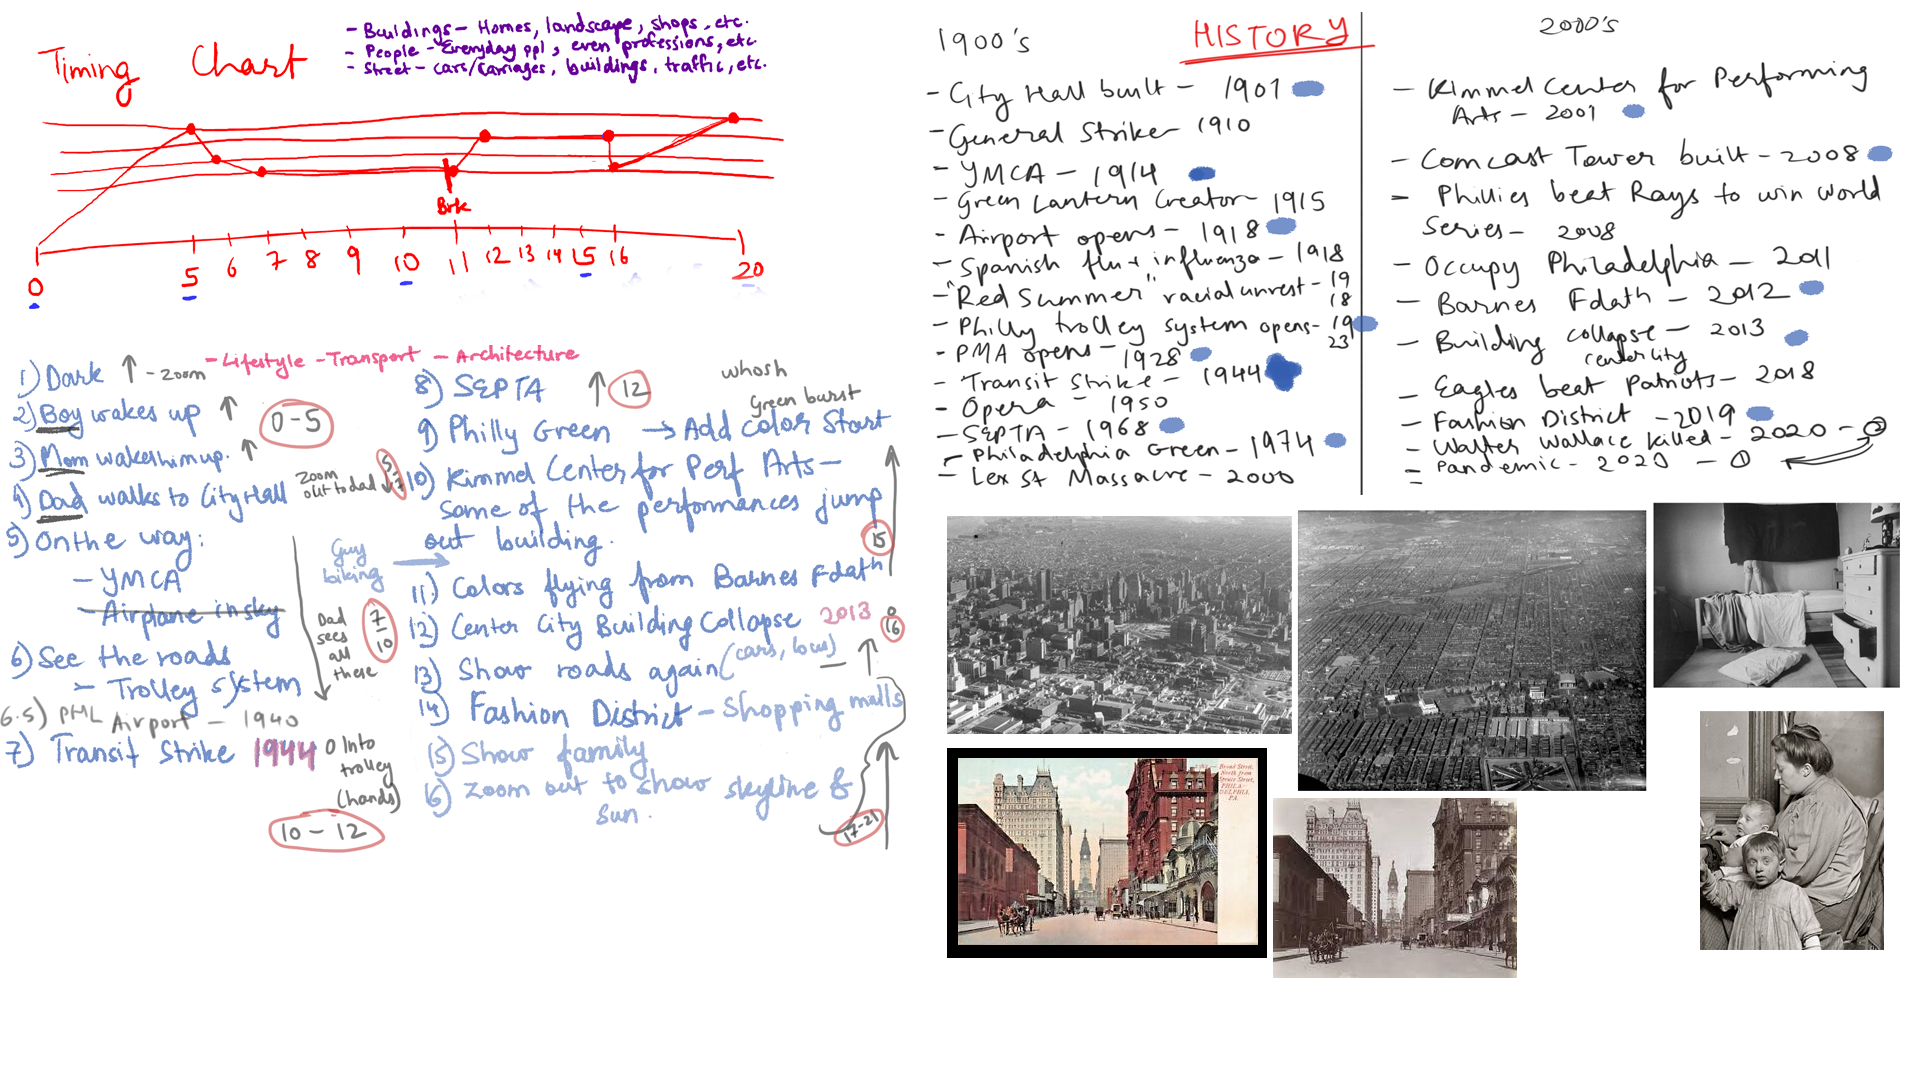 Timing Chart
- Buildings - Homes, landscape, shops, etc.
- People - Everyday ppl, even professions, etc
- Street - cars/carriages, buildings, traffic, etc.
Brk
0 5 6 7 8 9 10 11 12 13 14 15 16 20
- Lifestyle - Transport - Architecture
1) Dark ↑ - zoom
2) Boy wakes up ↑
0-5
3) Mom wakes him up. ↑
4) Dad walks to City Hall
zoom
out to dad
5
7
5) On the way:
- YMCA
- Airplane in sky
Guy
biking
Dad
sees
all
these
7
-
10
6) See the roads
- Trolley system
6.5) PML Airport - 1940
7) Transit Strike 1944
0 Into
trolley
(hands)
10-12
8) SEPTA ↑ 12
whosh
green burst
9) Philly Green → Add color Start
10) Kimmel Center for Perf Arts -
some of the performances jump
out building.
15
11) Colors flying from Barnes Fdath
12) Center City Building Collapse 2013
16
13) Show roads again (cars, bus)
14) Fashion District - Shopping malls
15) Show family
16) Zoom out to show skyline &
sun.
17-21
HISTORY
1900's
- City Hall built - 1901
- General Strike 1910
- YMCA - 1914
- Green Lantern Creator - 1915
- Airport opens - 1918
- Spanish flu + influenza - 1918
- "Red Summer" racial unrest - 19
18
- Philly trolley system opens - 19
23
- PMA opens - 1928
- Transit Strike - 1944
- Opera - 1950
- SEPTA - 1968
- Philadelphia Green - 1974
- Lex St Massacre - 2000
2000's
- Kimmel Center for Performing
Arts - 2001
- Comcast Tower built - 2008
- Phillies beat Rays to win World
Series - 2008
- Occupy Philadelphia - 2011
- Barnes Fdath - 2012
- Building collapse - 2013
center city
- Eagles beat Patriots - 2018
- Fashion District - 2019
- Walter Wallace killed - 2020 - ②
- Pandemic - 2020 - ①
Broad Street,
North from
Spruce Street,
PHILA-
DELPHIA,
PA.